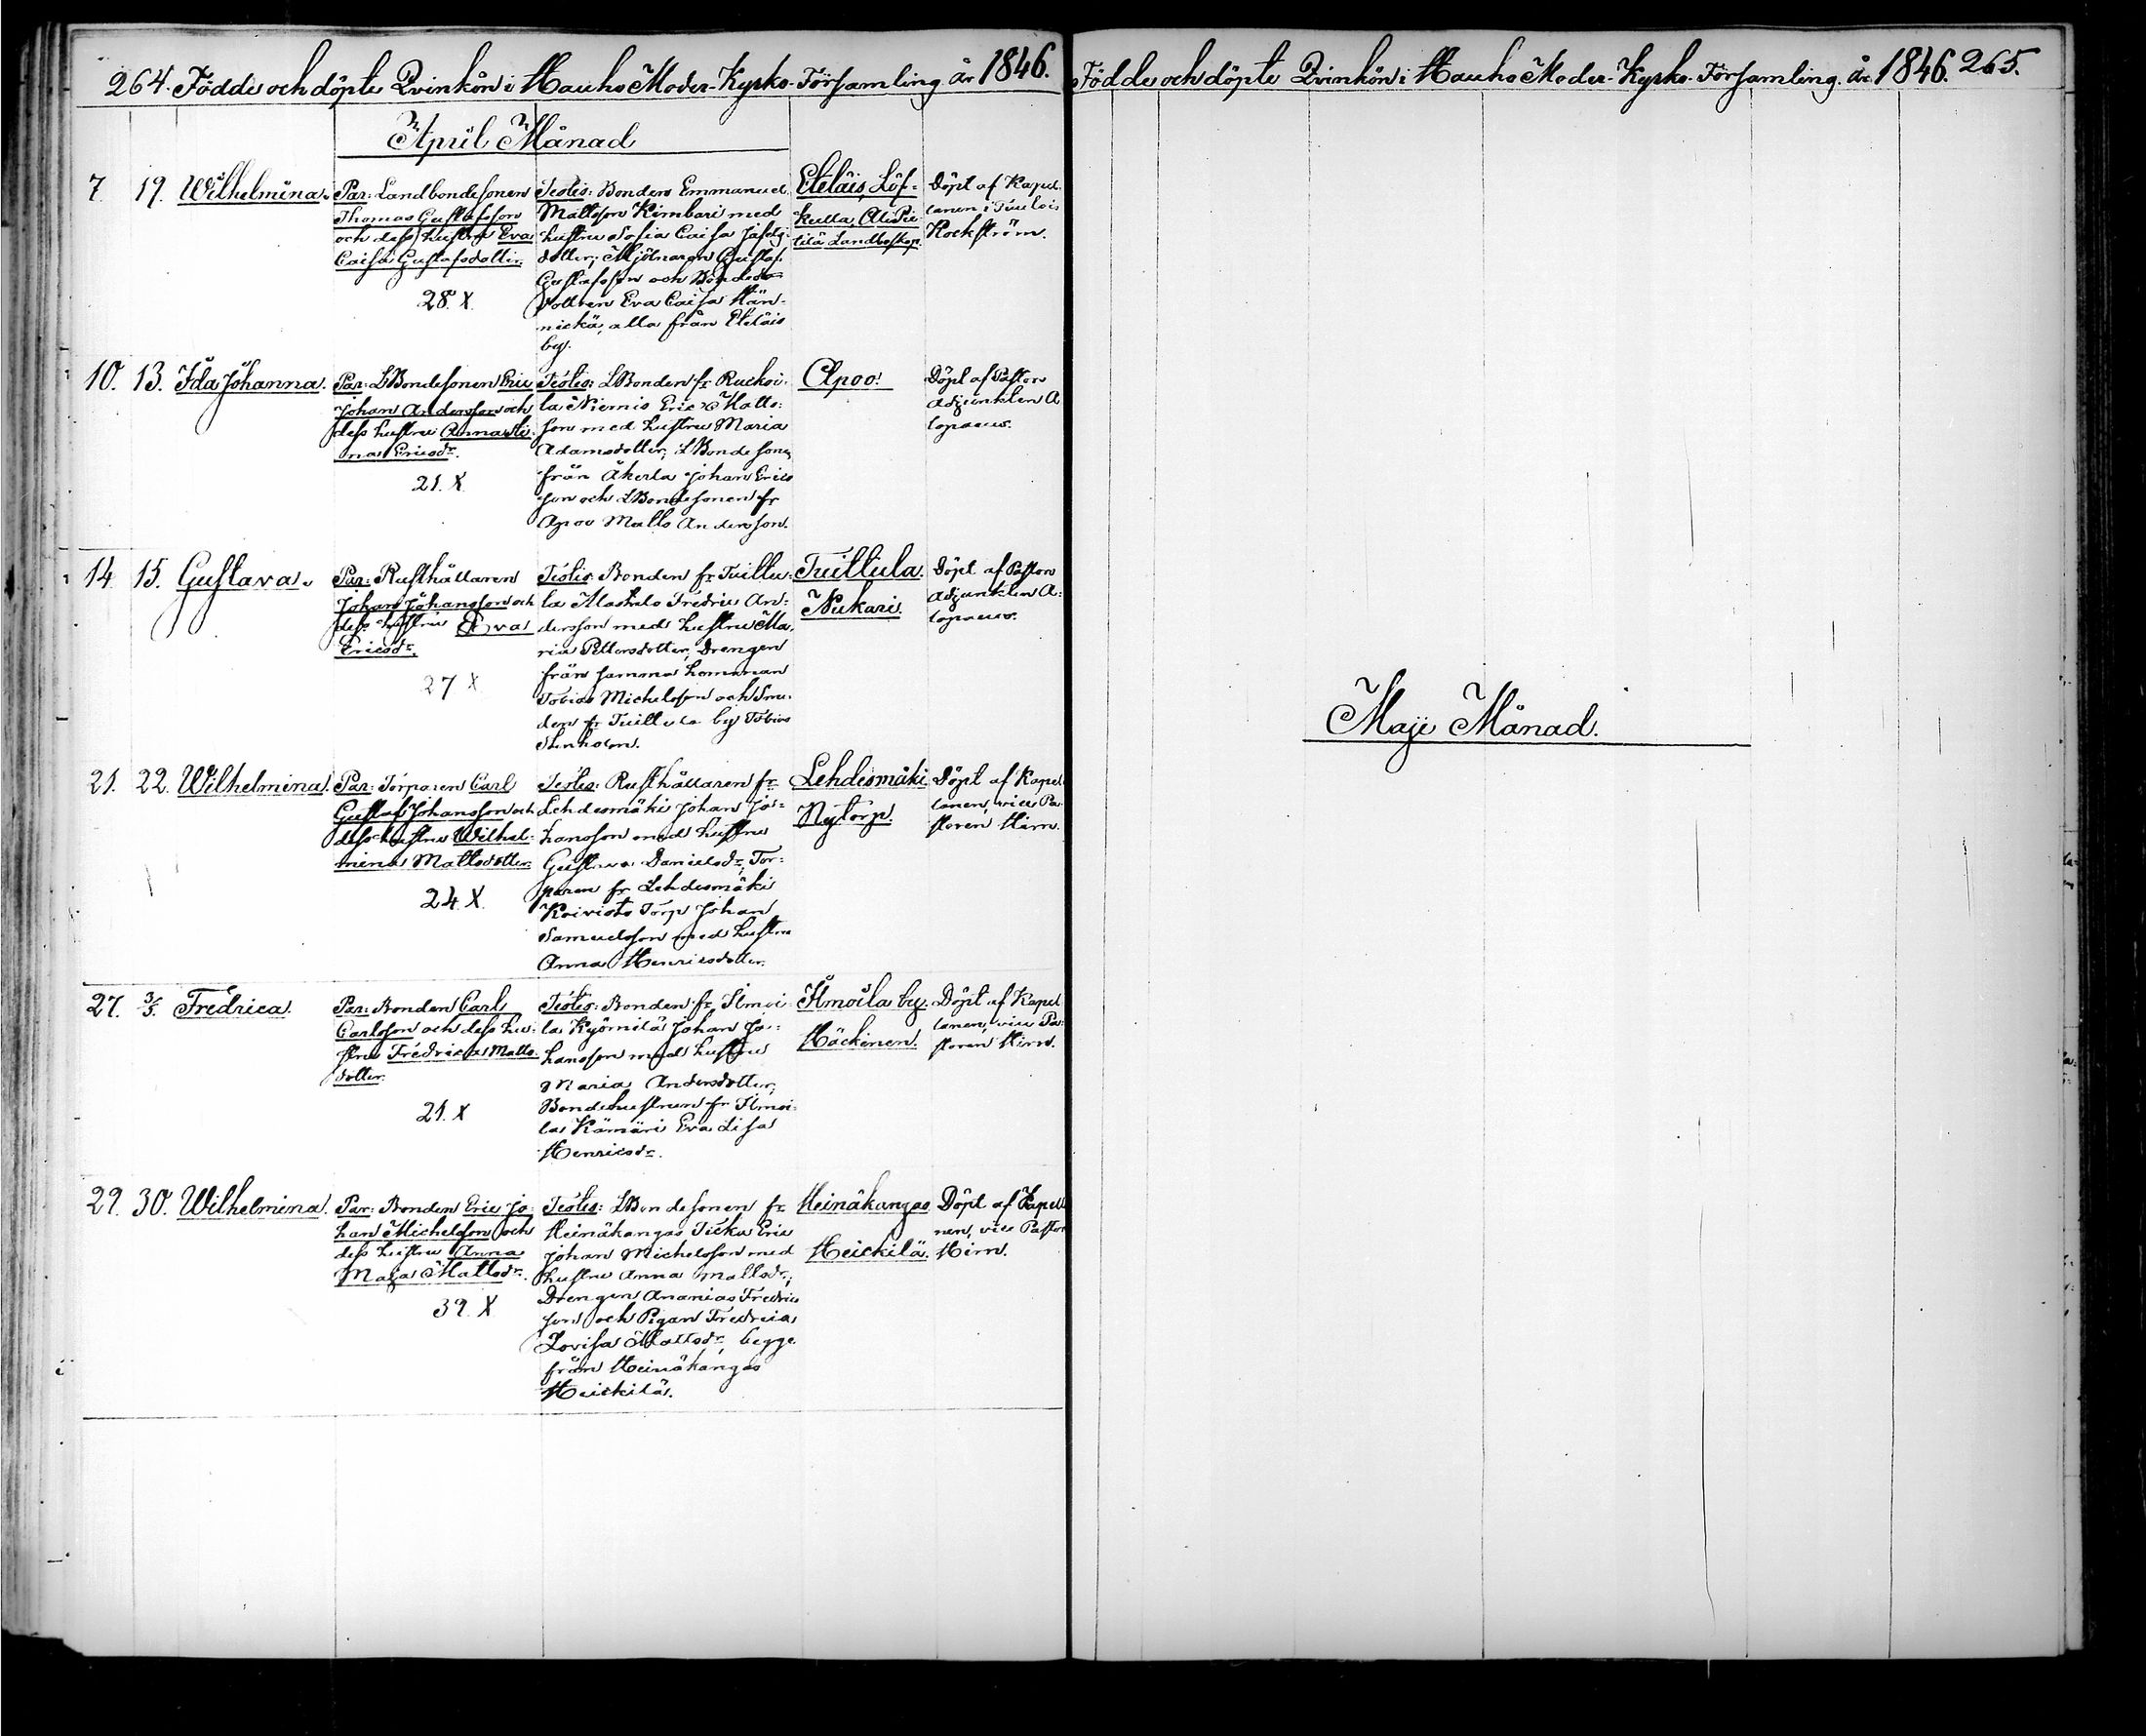 264. Födde och döpte Qvinkön i Hauho Moder-Kyrko-Församling år 1846.
April Månad
7. 19. Wilhelmina.
Par: Landbondesonen
Thomas Gustafsson
och dess hustru Eva
Caisa Gustafsdotter.
28. X.
Testes: Bonden Emmanuel
Mattsson Kimbari med
hustru Sofia Caisa
dotter; Mjölnaren Gustaf
Gustafsson och Bonde
dottren Eva Caisa Hän-
nickä, alla från Eteläis
by.
Eteläis, Löf-
kulla, Ali Pie
tilä Landboskap.
Döpt af Kapel
lanen i Tuulois
Hockström.
10. 13. Ida Johanna.
Par: LBondesonen Eric
Johan Andersson och
dess hustru Anna Sti-
na Ericsdr.
21. X.
Testes: LBonden fr Ruckoi-
la Niemis Eric Matts-
son med hustru Maria
Adamsdotter; LBondesonen
från Åkerla Johan Erics
son och LBondesonen fr
Apoo Matts Andersson.
Apoo.
Döpt af Pastors
Adjunkten A
lopaeus.
14. 15. Gustava.
Par: Rusthållaren
Johan Johansson och
dess hustru Eva
Ericsdr.
27 X
Testes: Bonden fr Tuittu-
la Alastalo Fredric An-
dersson med hustru Ma-
ria Pettersdotter; Drengen
från samma hemman
Tobias Michelsson och Sme-
den fr Tuittula by Tobias
Stenholm.
Tuittula.
Nukari.
Döpt af Pastors
Adjunkten A-
lopaeus.
21. 22. Wilhelmina.
Par: Torparen Carl
Gustaf Johansson och
dess hustru Wilhel-
mina Mattsdotter.
24. X.
Testes: Rusthållaren fr
Lehdesmäki Johan Jo-
hansson med hustru
Gustava Danielsdr; Tor-
paren fr Lehdesmäki
Koivisto Torp Johan
Samuelsson med hustru
Anna Henricsdotter.
Lehdesmäki
Nytorp.
Döpt af Kapel
lanen, vice Pa-
storen Hirn.
27. 3/5. Fredrica.
Par: Bonden Carl
Carlsson och dess hu-
stru Fredrica Matts-
dotter.
21. X
Testes: Bonden fr Ilmoi
la Kyömilä Johan Jo-
hansson med hustru
Maria Andersdotter;
Bondehustrun fr Ilmoi-
la Kämäri Eva Lisa
Henricsdr.
Ilmoila by.
Häckinen.
Döpt af Kapel
lanen, vice Pa-
storen Hirn.
29. 30. Wilhelmina.
Par: Bonden Eric Jo-
han Michelsson och
dess hustru Anna
Maja Mattsdr.
39. X
Testes: LBondesonen fr
Heinäkangas Ticka Eric
Johan Michelsson med
hustru Anna Mattsdr;
Drengen Ananias Fredrics
son och Pigan Fredrica
Lovisa Mattsdr, begge
från Heinäkangas
Heickilä.
Heinäkangas
Heickilä.
Döpt af Kapella
nen, vice Pastor
Hirn.
Födde och döpte Qvinkön i Hauho Moder-Kyrko-Församling år 1846. 265.
Maji Månad.